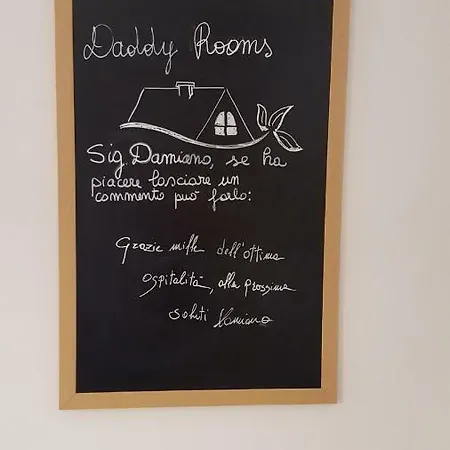 Daddy Rooms
Sig. Damiano, se ha
piacere lasciare un
commento può farlo:
Grazie mille dell'ottima
ospitalità, alla prossima
saluti Damiano